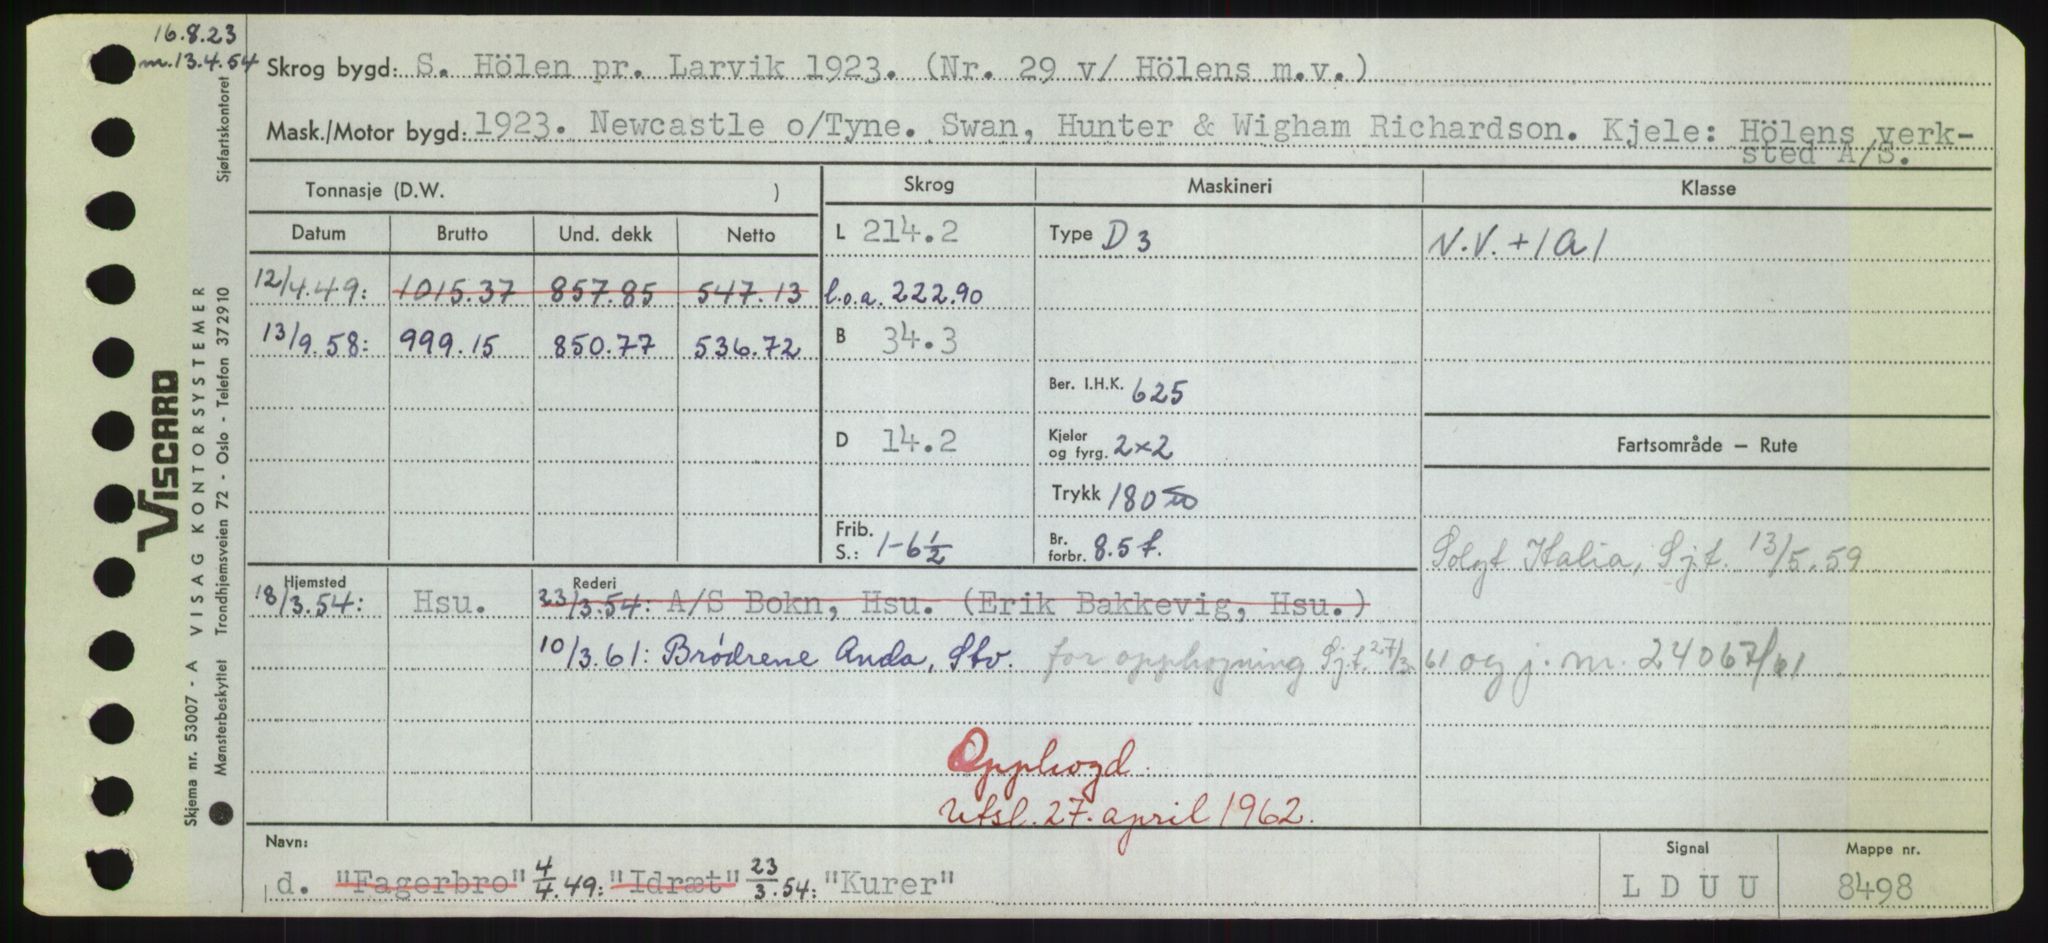 16.8.23
m. 13.4.54
Skrog bygd: S. Hölen pr. Larvik 1923. (Nr. 29 v/ Hölens m.v.)
Mask./Motor bygd: 1923. Newcastle o/Tyne. Swan, Hunter & Wigham Richardson. Kjele: Hölens verk-
sted A/S.
Tonnasje (D.W. )
Skrog
Maskineri
Klasse
Datum Brutto Und. dekk Netto
L 214.2
Type D 3
N.V. + 1 A 1
12/4.49: 1015.37 857.85 547.13
l.o.a. 222.90
13/9.58: 999.15 850.77 536.72
B 34.3
Ber. I.H.K. 625
D 14.2
Kjeler
og fyrg. 2x2
Fartsområde – Rute
Trykk 180
Frib.
S.: 1-6½
Br.
forbr. 8.5 t.
Solgt Italia, Sjt. 13/5.59
Hjemsted
18/3.54: Hsu.
Rederi
23/3.54: A/S Bokn, Hsu. (Erik Bakkevig, Hsu.)
10/3.61: Brødrene Anda, Stv. for opphogning Sj.t. 27/3. 61 og j. m. 24067/61
Opphogd
Utsl. 27. april 1962.
Navn:
d. "Fagerbro" 4/4.49: "Idræt" 23/3.54: "Kurer"
Signal
L D U U
Mappe nr.
8498
Sjøfartskontoret
VISCARD
VISAG KONTORSYSTEMER
Trondhjemsveien 72 - Oslo - Telefon 37 29 10
Skjema nr. 53007 - A
Mønsterbeskyttet